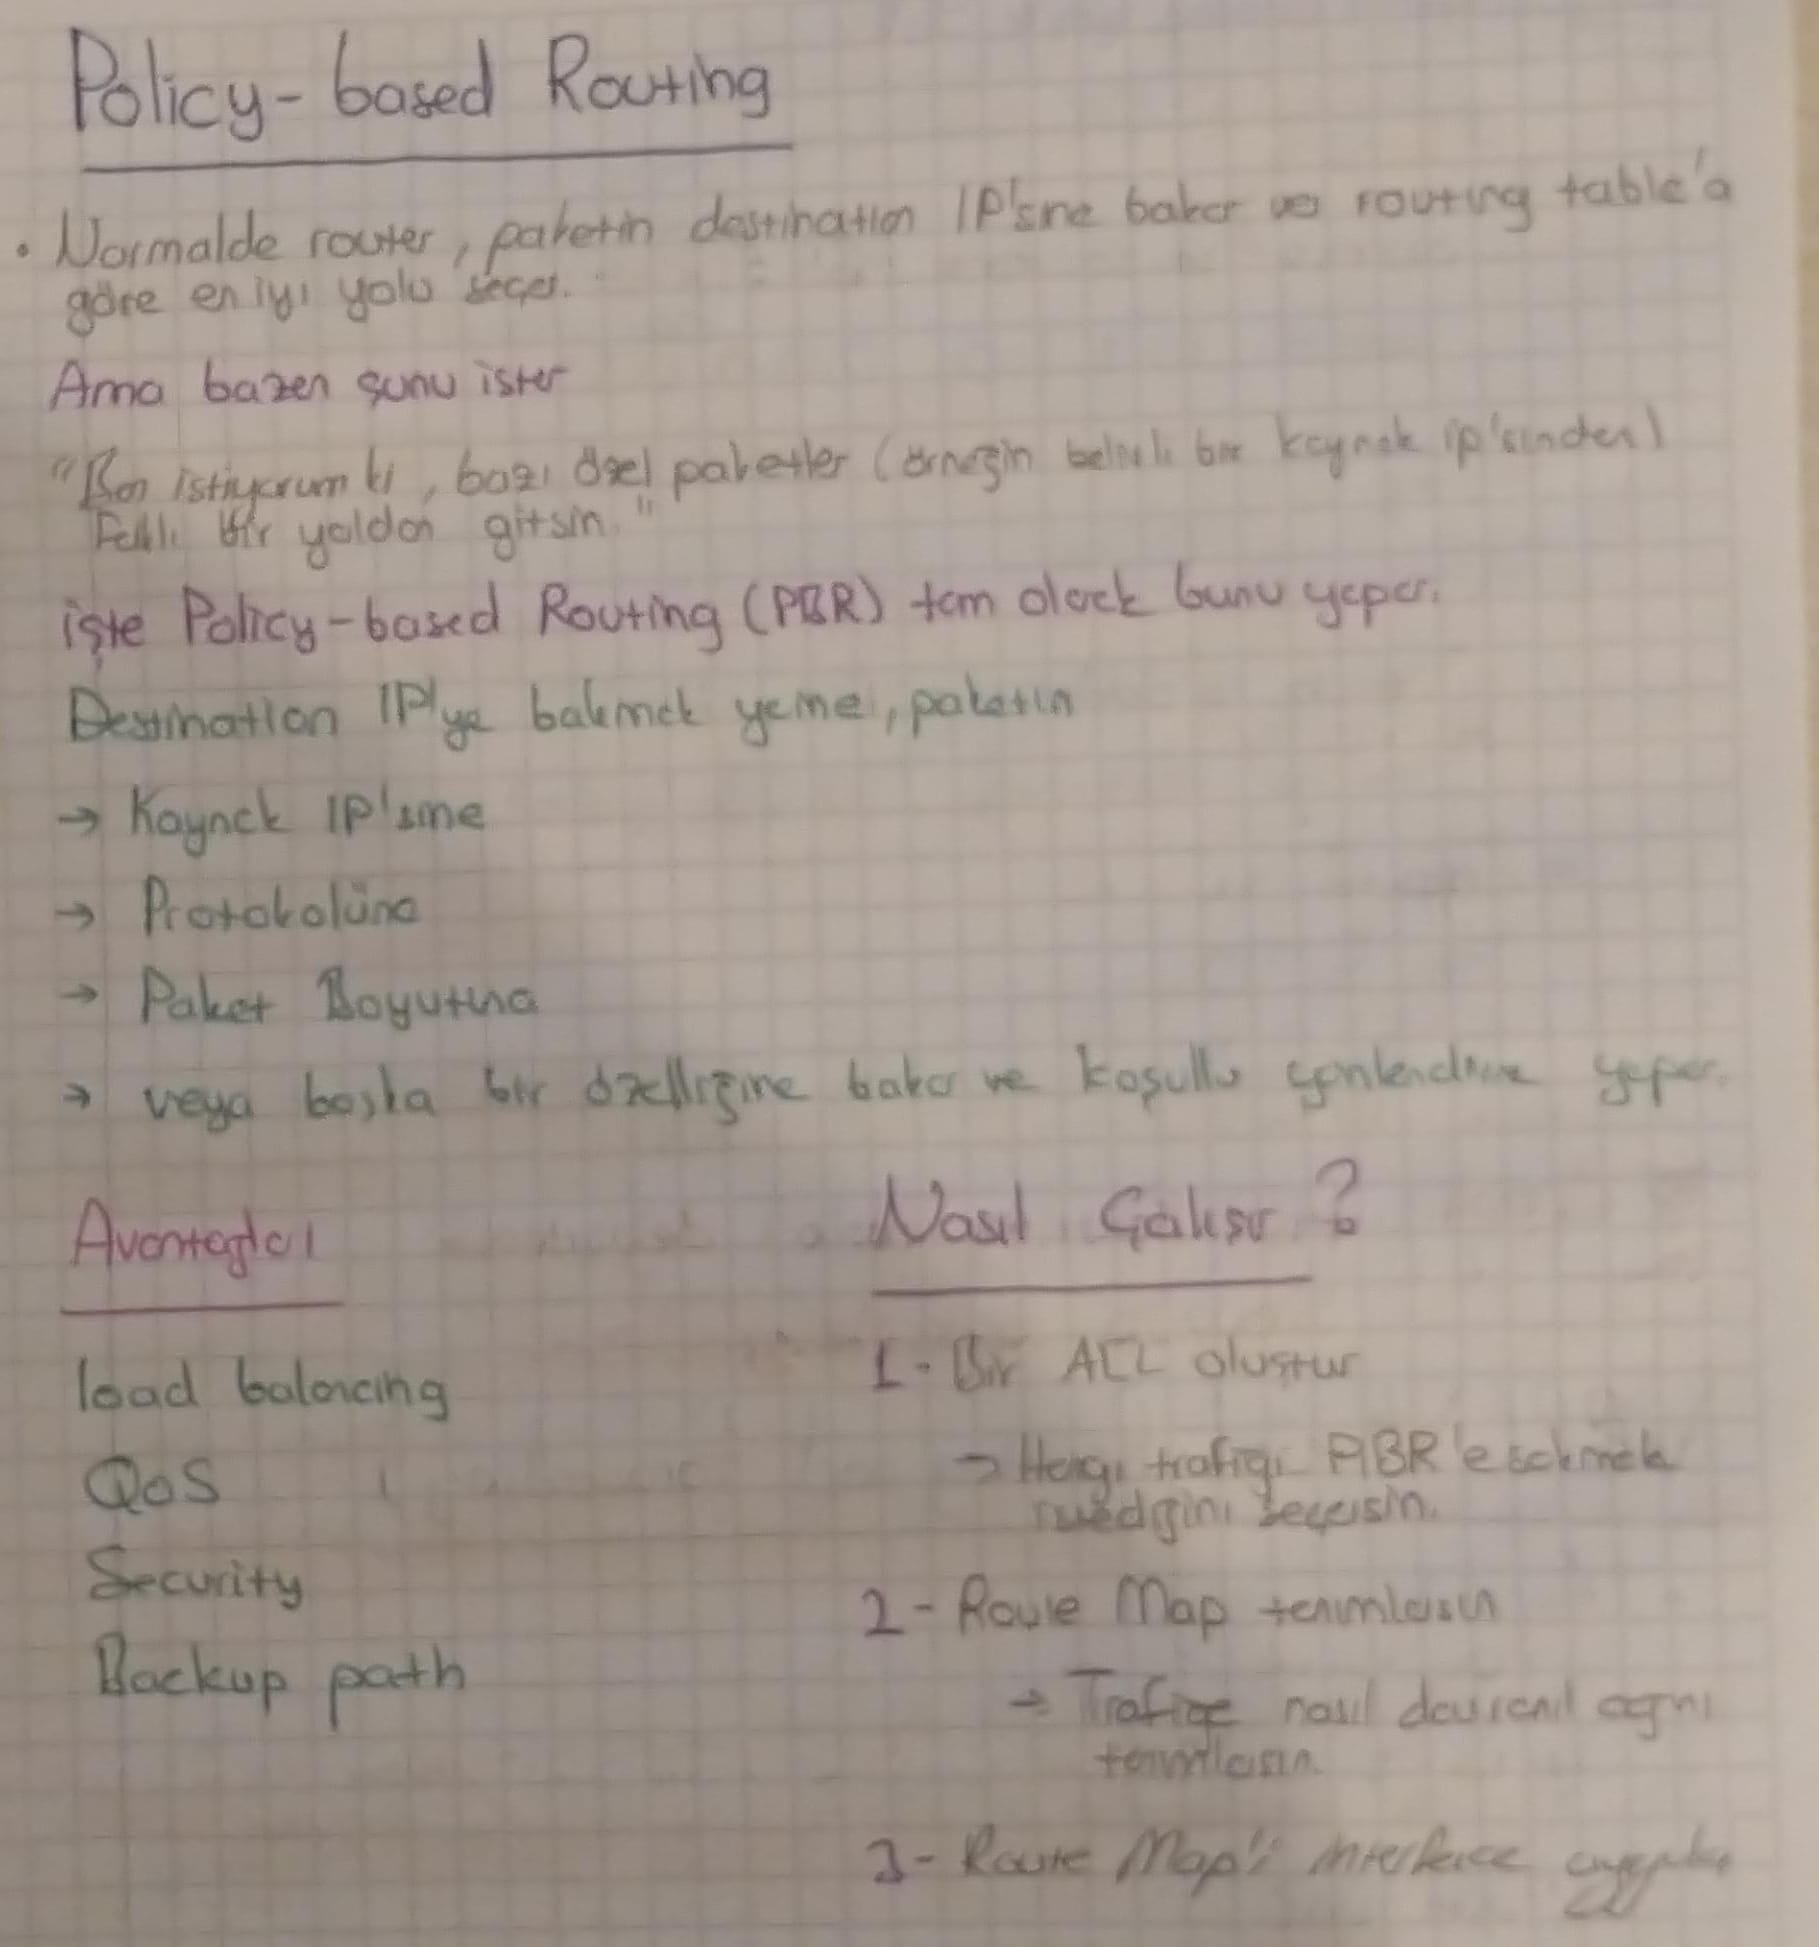 Policy-based Routing
• Normalde router, paketin destination IP'sine bakar ve routing table'a
göre en iyi yolu seçer.
Ama bazen şunu ister
"Ben istiyorum ki, bazı özel paketler (örneğin belirli bir kaynak ip'sinden)
Farklı bir yoldan gitsin."
işte Policy-based Routing (PBR) tam olarak bunu yapar.
Destination IP'ye bakmak yerine, paketin
→ Kaynak IP'sine
→ Protokolüne
→ Paket Boyutuna
→ veya başka bir özelliğine bakar ve koşullu yönlendirme yapar.
Avantajları
load balancing
QoS
Security
Backup path
Nasıl Çalışır?
1- Bir ACL oluştur
→ Hangi trafiği PBR'e sokmak
seçersin.
2- Route Map tanımlarsın
→ Trafiğe nasıl davranıl
tanımlarsın.
3- Route Map'i interface